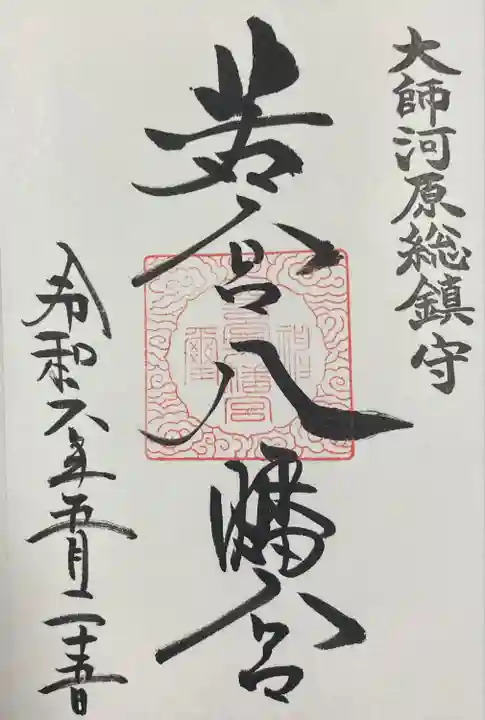 大師河原総鎮守
若宮八幡宮
令和六年五月二十五日